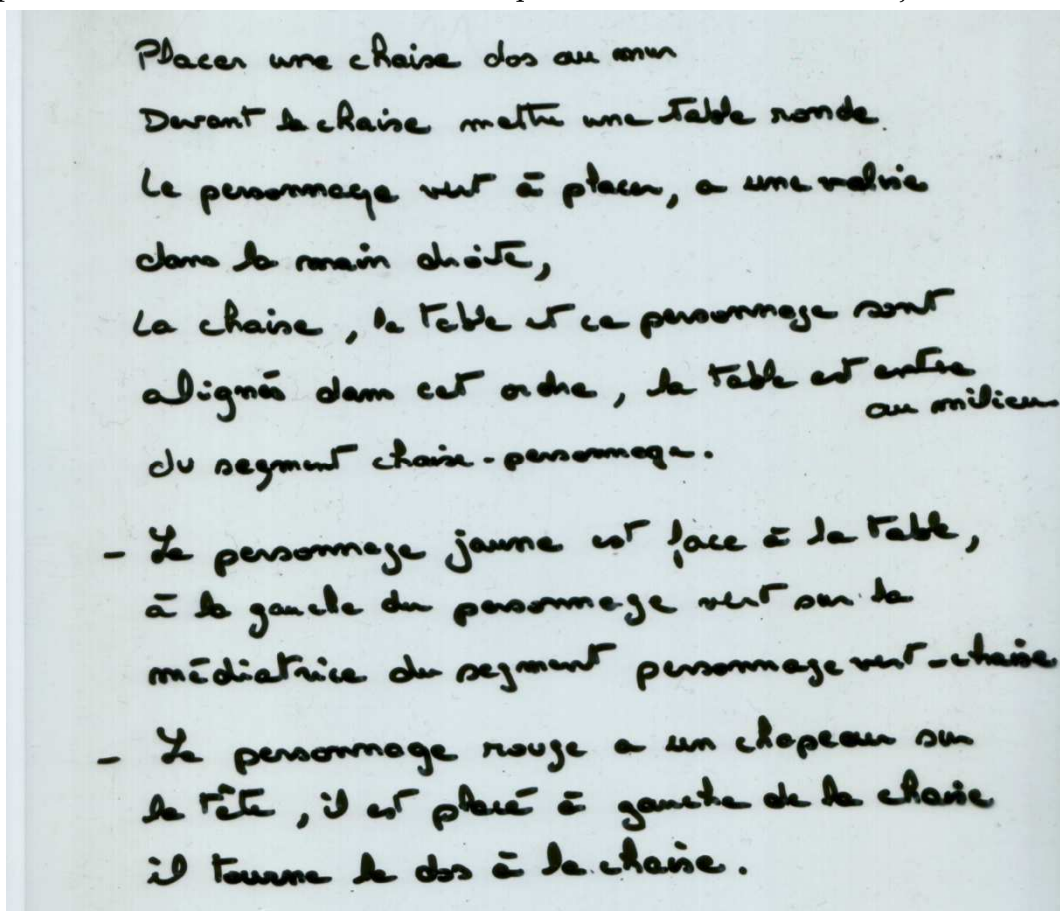 Placer une chaise dos au mur
Devant la chaise mettre une table ronde.
Le personnage vert à placer, a une valise
dans la main droite,
La chaise, la table et ce personnage sont
alignés dans cet ordre, la table est entre
au milieu
du segment chaise-personnage.
- Le personnage jaune est face à la table,
à la gauche du personnage vert sur la
médiatrice du segment personnage vert-chaise
- Le personnage rouge a un chapeau sur
la tête, il est placé à gauche de la chaise
il tourne le dos à la chaise.